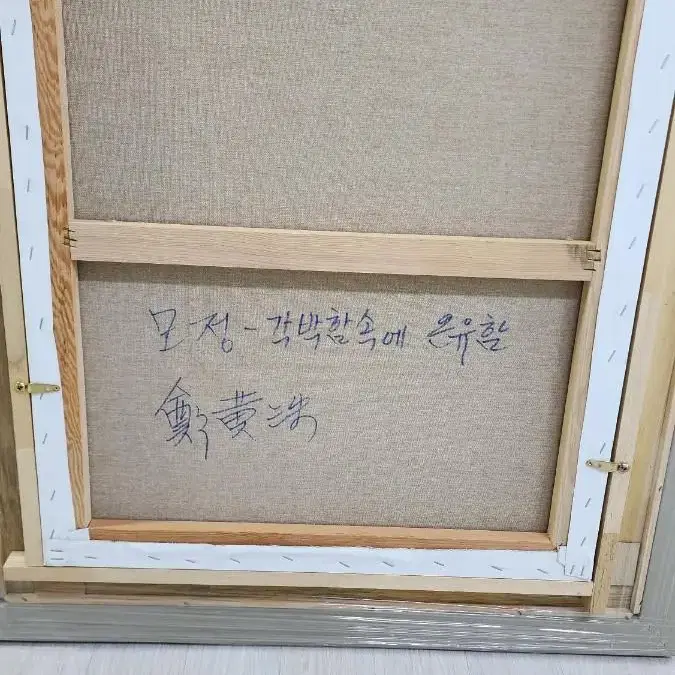 모정-각박함속에 온유함
鄭黃